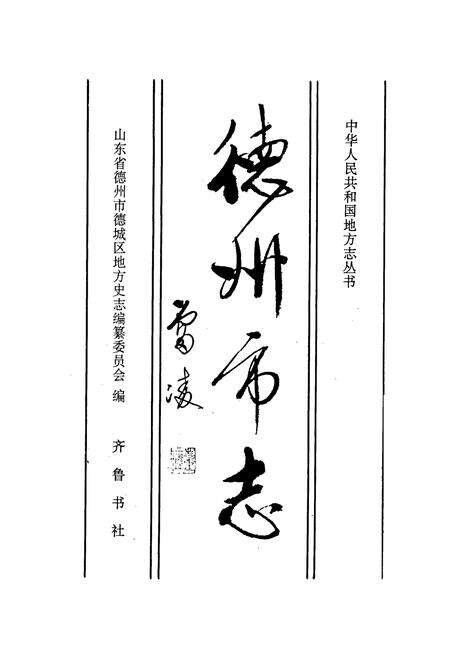 中华人民共和国地方志丛书
德州市志
山东省德州市德城区地方史志编纂委员会 编
齐鲁书社